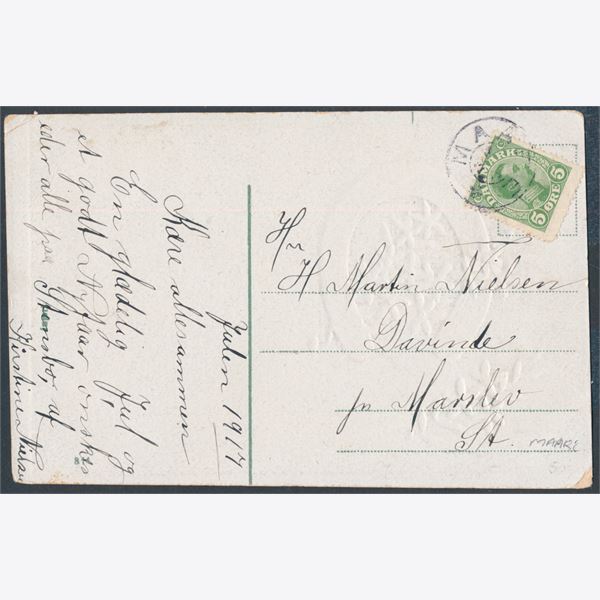 Julen 1917
Kære allesammen
En glædelig Jul og
et godt Nytaar ønskes
eder alle paa Stensbo, af
Kirstine Nielsen
Hr
H Martin Nielsen
Davinde
pr Marslev
St.
MAARE
DANMARK
5 ØRE 5
MA